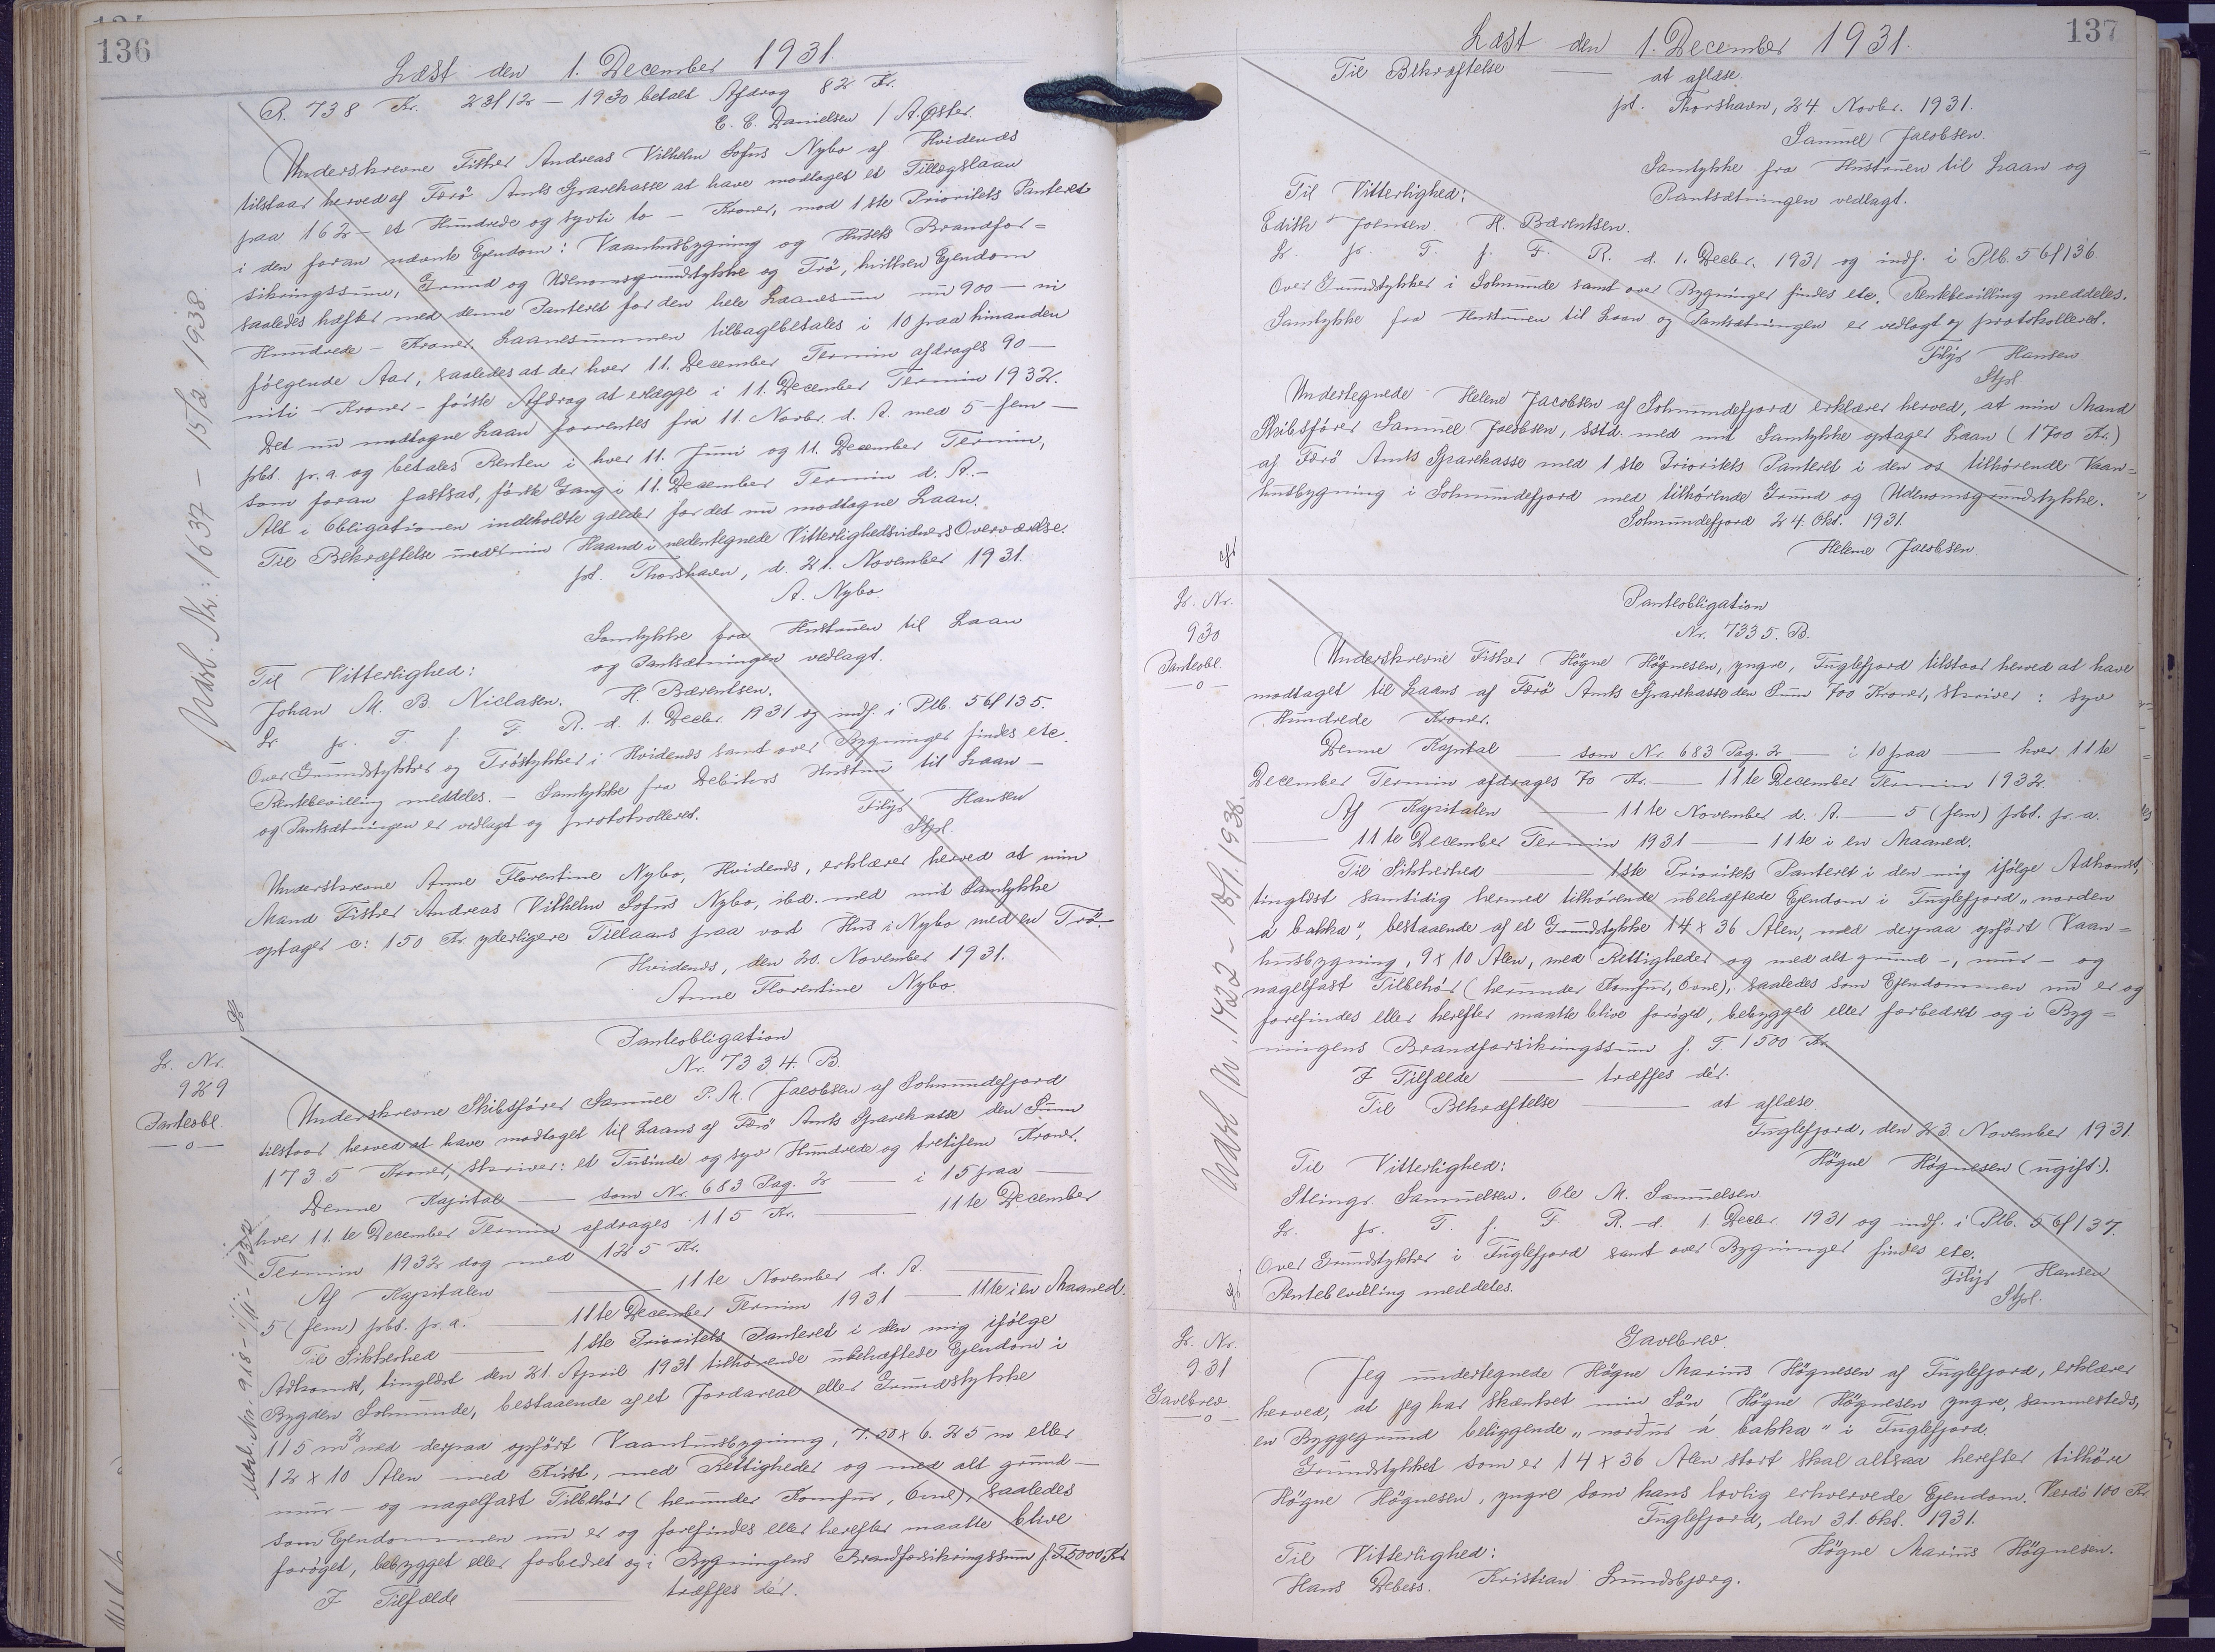 136
Læst den 1. December 1931.
R. 738 Kr. 23/12 — 1930 betalt Afdrag 82 Kr.
C. C. Danielsen / A. Øster.
Underskrevne Fisker Andreas Vilhelm Sofus Nybo af Hvidenæs
tilstaar herved af Færö Amts Sparekasse at have modtaget et Tillægslaan
paa 162 — et Hundrede og syvti to — Kroner, mod 1ste Prioritets Panteret
i den foran nævnte Ejendom: Vaanhusbygning og Husets Brandfor=
sikringssum, Grund og Udenomsgrundstykke og Trö, hvilken Ejendom
saaledes hæfter med denne Panteret for den hele Laanesum nu 900 — ni
Hundrede — Kroner. Laanesummen tilbagebetales i 10 paa hinanden
følgende Aar, saaledes at der hver 11. December Termin afdrages 90 —
niti — Kroner — første Afdrag at erlægge i 11. December Termin 1932.
Det nu modtagne Laan forrentes fra 11. Novbr. d. A. med 5 — fem —
pct. pr. a. og betales Renten i hver 11. Juni og 11. December Termin,
som foran fastsat, første Gang i 11. December Termin d. A. —
Alt i Obligationen indeholdte gælder for det nu modtagne Laan.
Til Bekræftelse under min Haand i nedentegnede Vitterlighedsvidners Overværelse.
pt. Thorshavn, d. 21. November 1931.
A. Nybo.
Samtykke fra Hustruen til Laan
og Pantsætningen vedlagt.
Til Vitterlighed:
Johan M. B. Niclasen. H. Bærentsen.
Lr. pr. T. f. F. R. d. 1. Decbr. 1931 og indf. i Plb. 56/135.
Over Grundstykker og Tröstykker i Hvidenæs samt over Bygninger findes etc.
Rentebevilling meddeles. — Samtykke fra Debitors Hustru til Laan —
og Pantsætningen er vedlagt og protokolleret.
Filip Hansen
Stfpl.
Underskrevne Anne Florentine Nybo, Hvidenæs, erklærer herved at min
Mand Fisker Andreas Vilhelm Sofus Nybo, ibd. med mit Samtykke
optager c: 150 Kr yderligere Tillaans paa vort Hus i Nybo med en Trö.
Hvidenæs, den 20. November 1931.
Anne Florentine Nybo.
Udsl. Nr: 1637 — 15/12 1938.
Lr. Nr.
929
Panteobl.
—o—
Panteobligation
Nr. 7334. B.
Underskrevne Skibsfører Samuel P. M. Jacobsen af Solmundefjord
tilstaar herved at have modtaget til Laans af Færö Amts Sparekasse den Sum
1735 Kroner, skriver: et Tusinde og syv Hundrede og tretifem Kroner.
Denne Kapital — som Nr. 683 Pag. 2 — i 15 paa —
hver 11.te December Termin afdrages 115 Kr. — 11te December
Termin 1932 dog med 125 Kr.
Af Kapitalen — 11te November d. A. —
5 (fem) pct. pr. a. — 11te December Termin 1931 — 11te i en Maaned.
Til Sikkerhed — 1ste Prioritets Panteret i den mig ifølge
Adkomst, tinglæst den 21. April 1931 tilhørende ubehæftede Ejendom i
Bygden Solmunde, bestaaende af et Jordareal eller Grundstykke
115 m² med derpaa opført Vaanhusbygning, 7.50 x 6.25 m eller
12 x 10 Alen med Kvist, med Rettigheder og med alt grund—
mur— og nagelfast Tilbehør (herunder Komfur, Ovne), saaledes
som Ejendommen nu er og forefindes eller herefter maatte blive
forøget, bebygget eller forbedret og i Bygningens Brandforsikringssum f. T. 5000 Kr.
I Tilfælde — træffes dér.
137
Læst den 1. December 1931.
Til Bekræftelse — at aflæse.
pt. Thorshavn, 24 Novbr. 1931.
Samuel Jacobsen.
Samtykke fra Hustruen til Laan og
Pantsætningen vedlagt.
Til Vitterlighed:
Edith Joensen. H. Bærentsen.
Lr. pr. T. f. F. R. d. 1. Decbr. 1931 og indf. i Plb. 56/136.
Over Grundstykker i Solmunde samt over Bygninger findes etc. Rentebevilling meddeles.
Samtykke fra Hustruen til Laan og Pantsætningen er vedlagt og protokolleret.
Filip Hansen
Stfpl
Undertegnede Helene Jacobsen af Solmundefjord erklærer herved, at min Mand
Skibsfører Samuel Jacobsen, sstd. med mit Samtykke optager Laan (1700 Kr.)
af Færö Amts Sparekasse med 1ste Prioritets Panteret i den os tilhørende Vaan=
husbygning i Solmundefjord med tilhørende Grund og Udenomsgrundstykke.
Solmundefjord 24 Okt. 1931.
Helene Jacobsen.
Lr. Nr.
930
Panteobl.
—o—
Panteobligation
Nr. 7335. B.
Underskrevne Fisker Högne Högnesen, yngre, Fuglefjord tilstaar herved at have
modtaget til Laans af Færö Amts Sparekasse den Sum 700 Kroner, skriver: syv
Hundrede Kroner.
Denne Kapital — som Nr. 683 Pag. 2 — i 10 paa — hver 11te
December Termin afdrages 70 Kr. — 11te December Termin 1932.
Af Kapitalen — 11te November d. A. — 5 (fem) pct. pr. a.
— 11te December Termin 1931 — 11te i en Maaned.
Til Sikkerhed — 1ste Prioritets Panteret i den mig ifølge Adkomst,
tinglæst samtidig hermed tilhörende ubehæftede Ejendom i Fuglefjord „norden
á bakka", bestaaende af et Grundstykke 14 x 36 Alen, med derpaa opført Vaan=
husbygning, 9 x 10 Alen, med Rettigheder og med alt grund—, mur— og
nagelfast Tilbehör (herunder Komfur, Ovne), saaledes som Ejendommen nu er og
forefindes eller herefter maatte blive forøget, bebygget eller forbedret og i Byg=
ningens Brandforsikringssum f. T. 1500 Kr
I Tilfælde — træffes dér.
Til Bekræftelse — at aflæse
Fuglefjord, den 23. November 1931.
Högne Högnesen (ugift).
Til Vitterlighed:
Steingr. Samuelsen. Ole M. Samuelsen.
Lr. pr. T. f. F. R. d. 1. Decbr. 1931 og indf. i Plb. 56/137.
Over Grundstykker i Fuglefjord samt over Bygninger findes etc.
Rentebevilling meddeles.
Filip Hansen
Stfpl.
Lr. Nr.
931
Gavebrev.
—o—
Gavebrev.
Jeg undertegnede Högne Marius Högnesen af Fuglefjord, erklærer
herved, at jeg har skænket min Sön Högne Högnesen yngre, sammesteds,
en Byggegrund beliggende „norður á bakka" i Fuglefjord.
Grundstykket som er 14 x 36 Alen stort skal altsaa herefter tilhöre
Högne Högnesen, yngre som hans lovlig erhvervede Ejendom. Værdi 100 Kr.
Fuglefjord, den 31. Okt. 1931.
Högne Marius Högnesen.
Til Vitterlighed:
Hans Debess. Kristian Lundsbjærg.